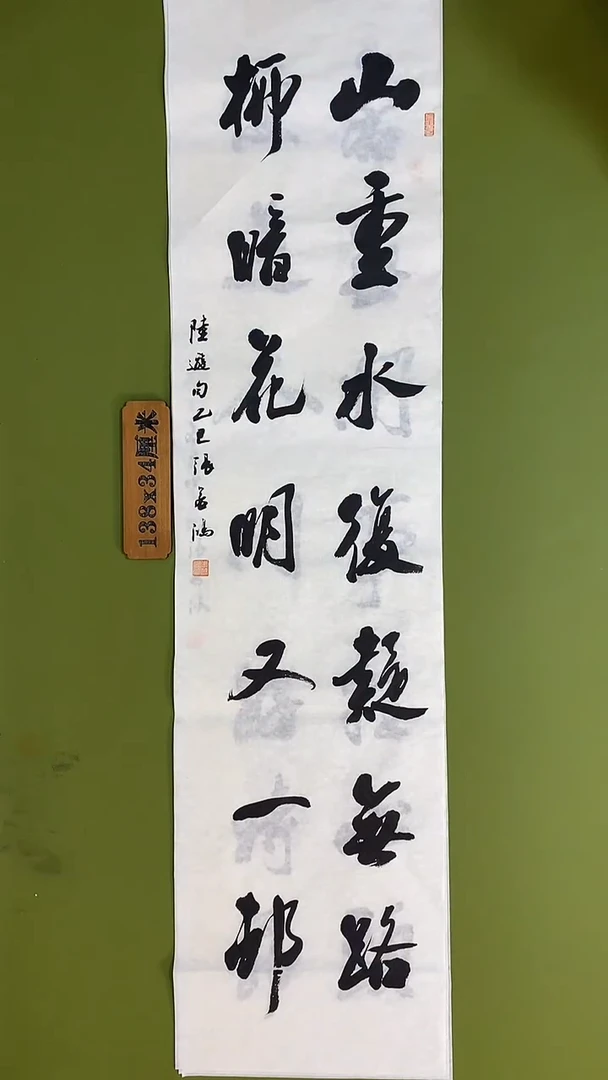 山重水復疑無路
柳暗花明又一邨
陸遊句乙巳張鴻
138x34厘米